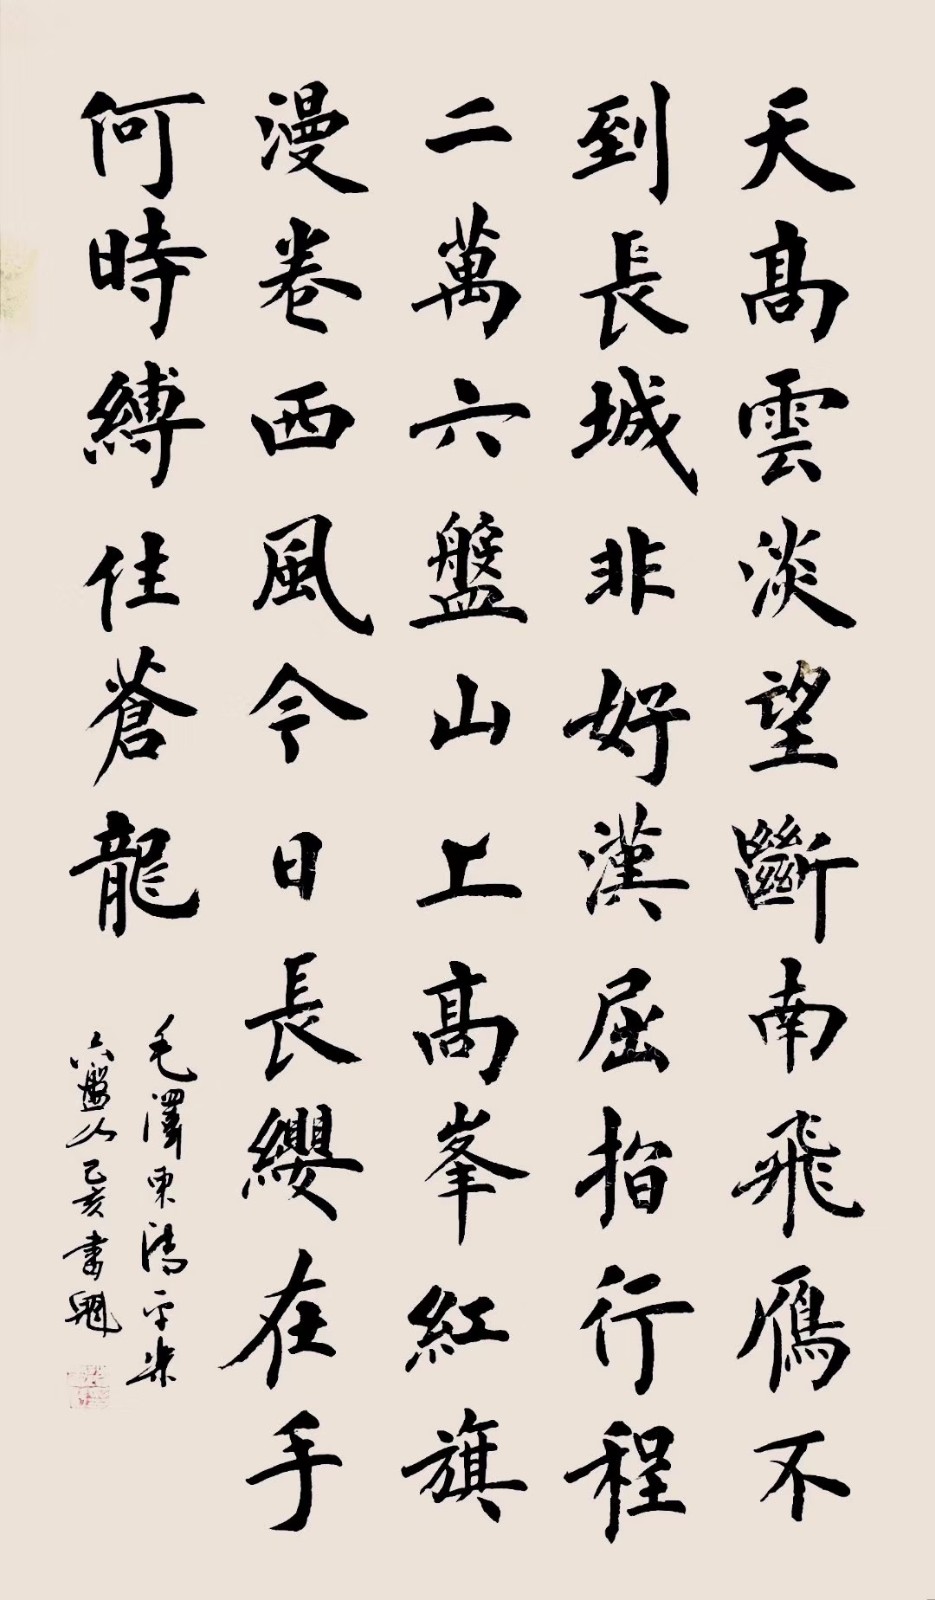 天髙雲淡望斷南飛鴈不
到長城非好漢屈指行程
二萬六盤山上髙峯紅旗
漫卷西風今日長纓在手
何時縛住蒼龍
毛澤東清平樂
六盤山己亥書